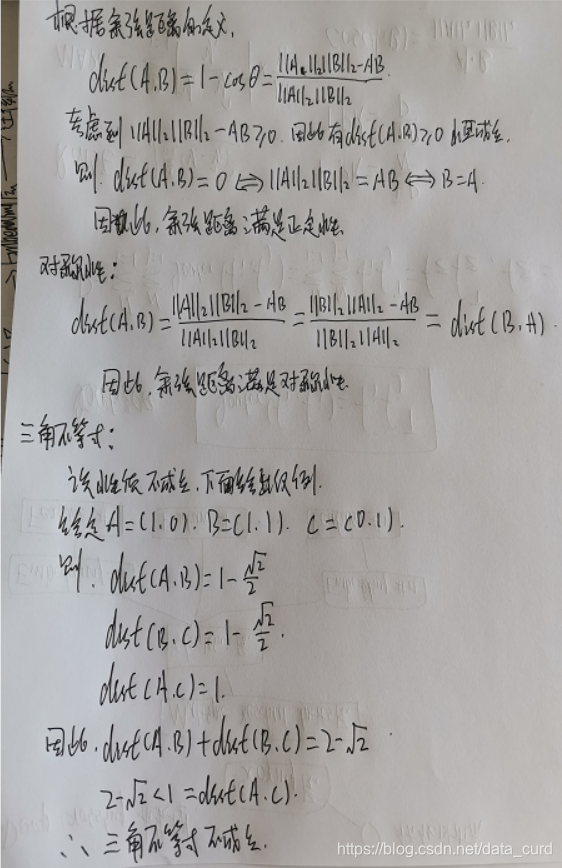 根据余弦距离的定义,
dist(A,B)=1-cosθ=\frac{||A||₂||B||₂-AB}{||A||₂||B||₂}.
考虑到 ||A||₂||B||₂-AB≥0. 因此有dist(A,B)≥0 恒成立.
则. dist(A,B)=0 ⟺ ||A||₂||B||₂=AB ⟺ B=A.
因此, 余弦距离满足正定性.
对称性:
dist(A,B)=\frac{||A||₂||B||₂-AB}{||A||₂||B||₂}=\frac{||B||₂||A||₂-AB}{||B||₂||A||₂}=dist(B,A).
因此, 余弦距离满足对称性.
三角不等式:
该性质不成立, 下面给出反例.
给定A=(1,0). B=(1,1). C=(0,1).
则. dist(A,B)=1-\frac{√2}{2}
dist(B,C)=1-\frac{√2}{2}.
dist(A,C)=1.
因此, dist(A,B)+dist(B,C)=2-√2
2-√2<1=dist(A,C).
∴ 三角不等式不成立.
https://blog.csdn.net/data_curd